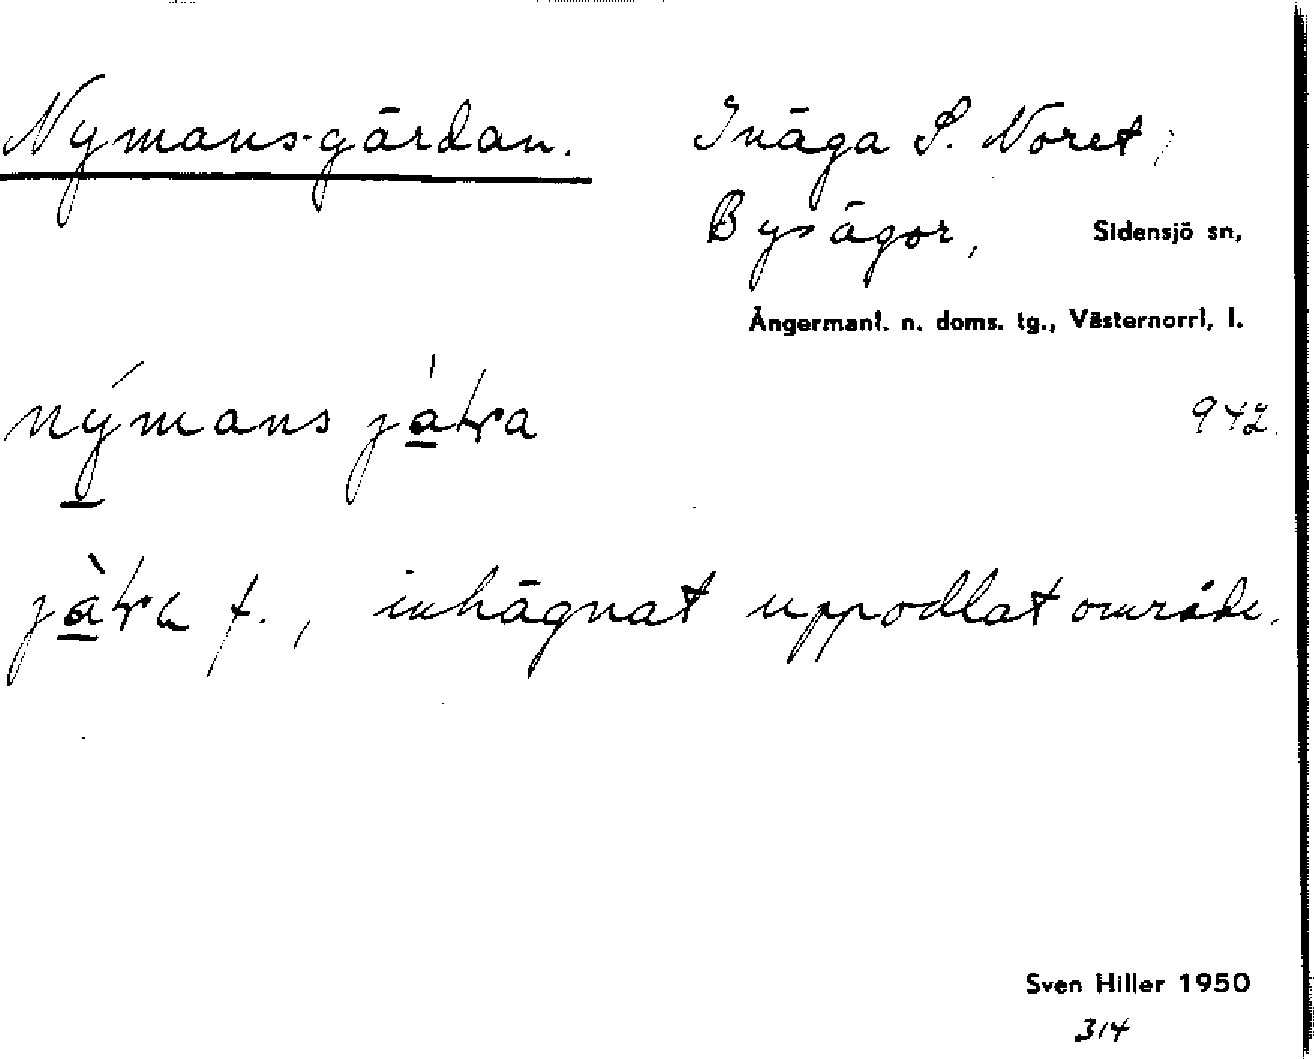 Nymans-gärdan.
Inäga S. Noret,
Bys ägor, Sidensjö sn,
Ångermanl. n. doms. tg., Västernorrl, l.
nýmans
942.
f., inhägnat uppodlat område.
Sven Hiller 1950
314